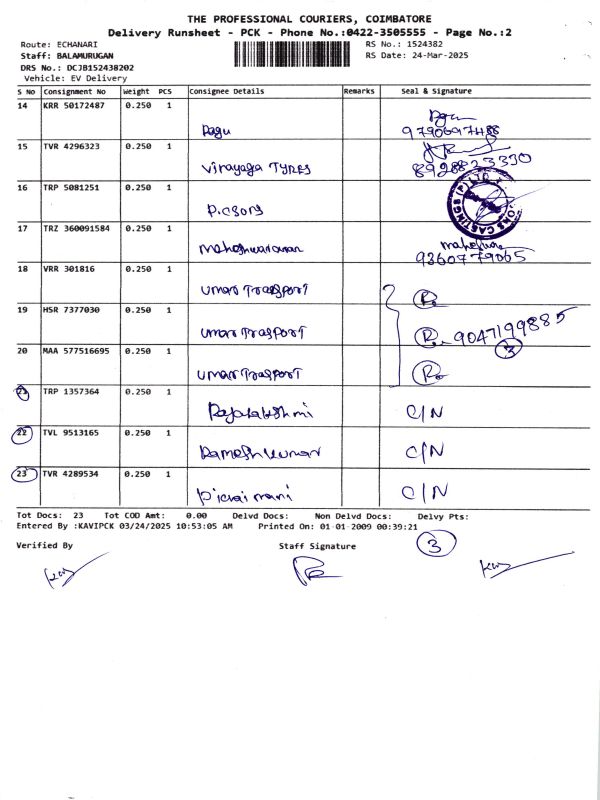 THE PROFESSIONAL COURIERS, COIMBATORE
Delivery Runsheet - PCK - Phone No.:0422-3505555 - Page No.:2
Route: ECHANARI RS No.: 1524382
Staff: BALAMURUGAN RS Date: 24-Mar-2025
DRS No.: DCJB152438202
Vehicle: EV Delivery
S No Consignment No Weight PCS Consignee Details Remarks Seal & Signature
14 KRR 50172487 0.250 1
Ragu 9790697488
15 TVR 4296323 0.250 1
Virayaga TYRES 8928823330
16 TRP 5081251 0.250 1
P.csons
CASTINGS (P) LTD
17 TRZ 360091584 0.250 1
maheshwaran 9360779065
18 VRR 301816 0.250 1
umar Trasport R
19 HSR 7377030 0.250 1
umar Trasport R 9047199885
3
20 MAA 577516695 0.250 1
umar Trasport R
21 TRP 1357364 0.250 1
Rajalakshmi C/N
22 TVL 9513165 0.250 1
Rameshkumar C/N
23 TVR 4289534 0.250 1
C/N
Tot Docs: 23 Tot COD Amt: 0.00 Delvd Docs: Non Delvd Docs: Delvy Pts:
Entered By :KAVIPCK 03/24/2025 10:53:05 AM Printed On: 01-01-2009 00:39:21
Verified By Staff Signature 3